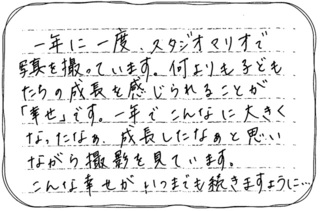 一年に一度、スタジオマリオで
写真を撮っています。何よりも子ども
たちの成長を感じられることが
「幸せ」です。一年でこんなに大きく
なったなぁ、成長したなぁと思い
ながら撮影を見ています。
こんな幸せがいつまでも続きますように…